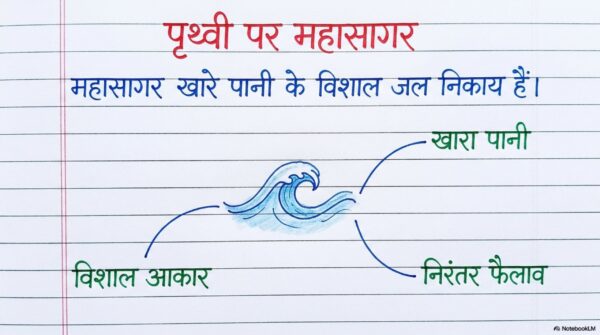 पृथ्वी पर महासागर
महासागर खारे पानी के विशाल जल निकाय हैं।
खारा पानी
विशाल आकार
निरंतर फैलाव
NotebookLM